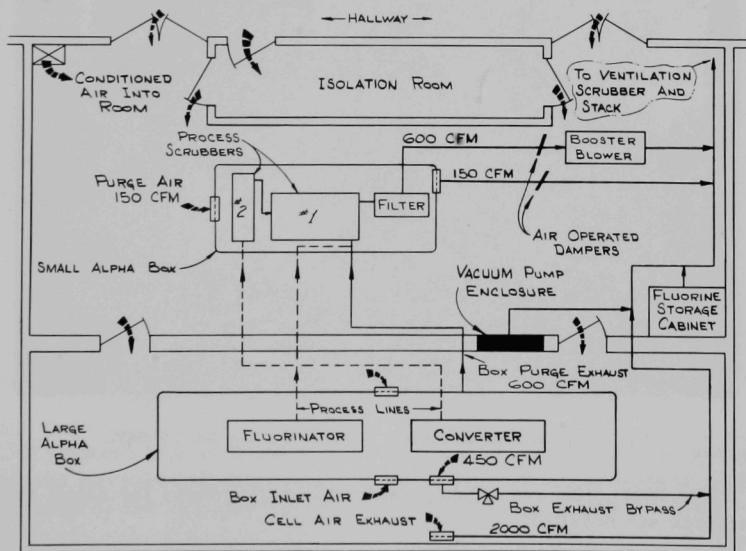 HALLWAY
CONDITIONED
AIR INTO
ROOM
ISOLATION ROOM
TO VENTILATION
SCRUBBER AND
STACK
PROCESS
SCRUBBERS
600 CFM
BOOSTER
BLOWER
PURGE AIR
150 CFM
#2
#1
FILTER
150 CFM
AIR OPERATED
DAMPERS
SMALL ALPHA BOX
VACUUM PUMP
ENCLOSURE
FLUORINE
STORAGE
CABINET
BOX PURGE EXHAUST
600 CFM
PROCESS LINES
LARGE
ALPHA
BOX
FLUORINATOR
CONVERTER
450 CFM
BOX INLET AIR
BOX EXHAUST BYPASS
CELL AIR EXHAUST
2000 CFM